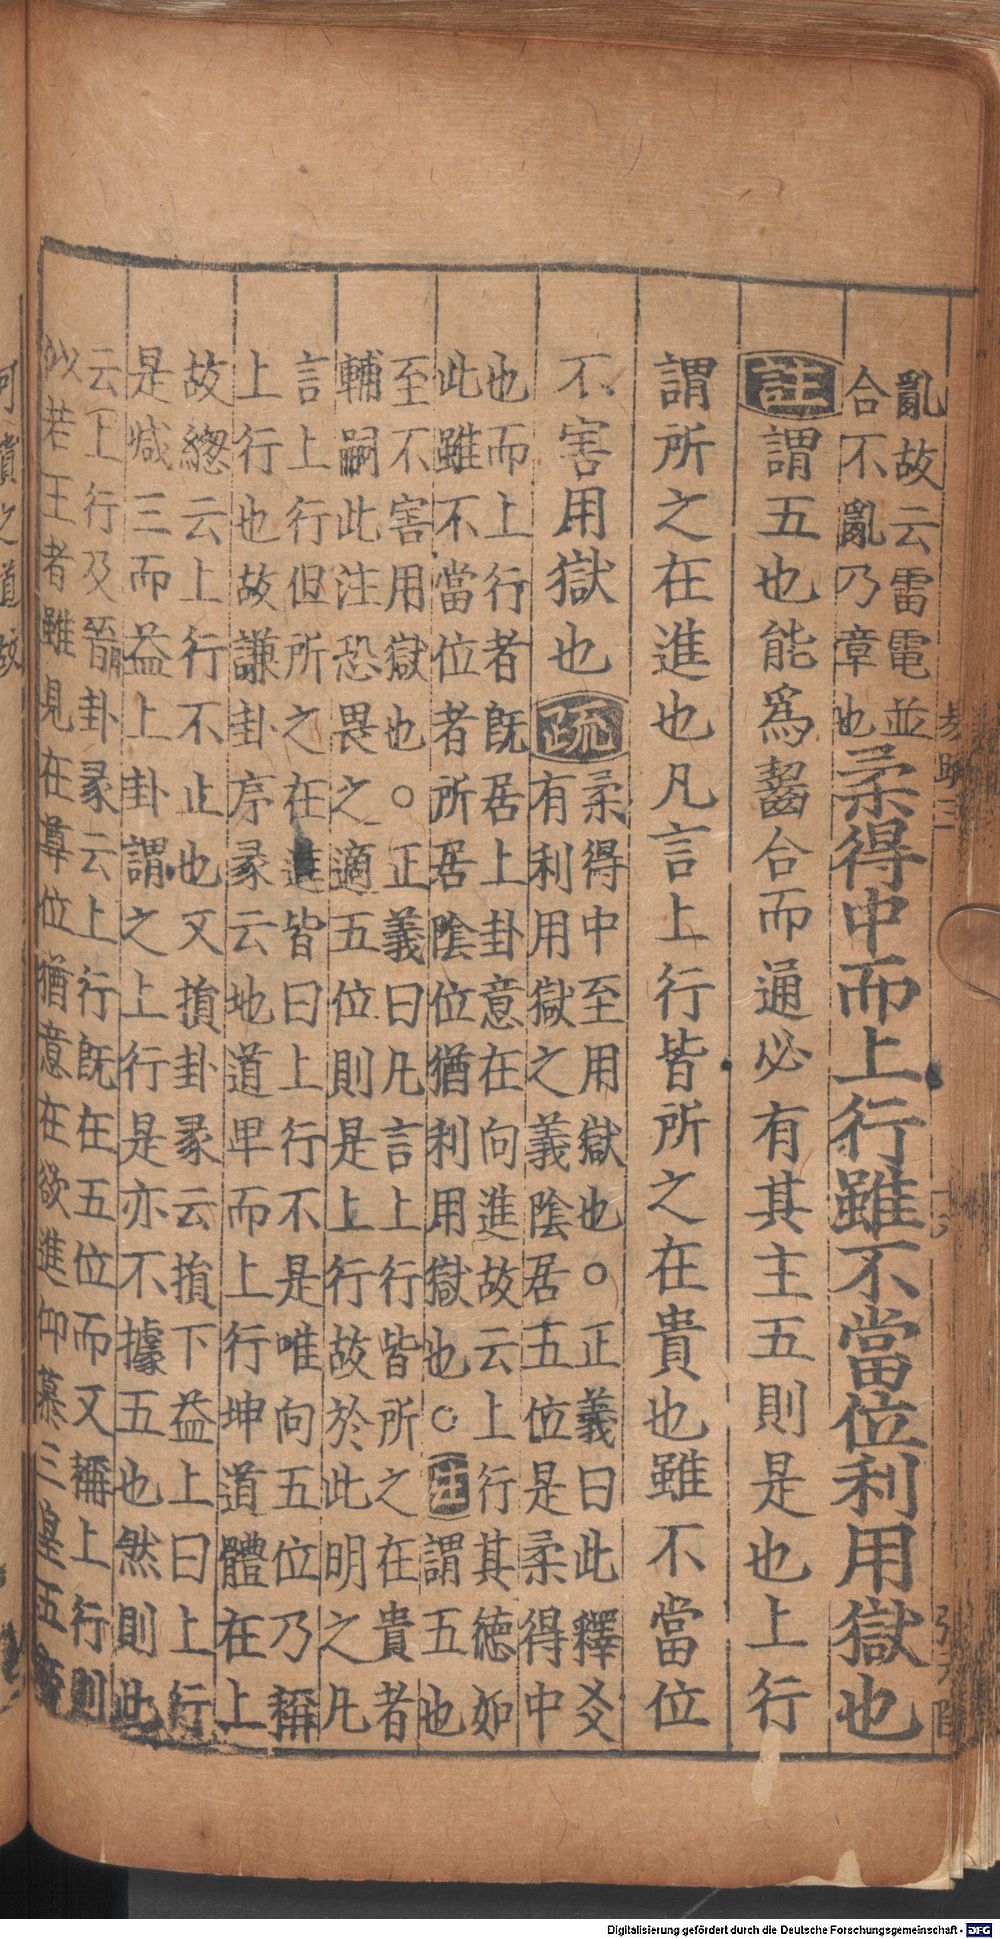 亂故云雷電並
合不亂乃章也
柔得中而上行雖不當位利用獄也
註謂五也能爲齧合而通必有其主五則是也上行
謂所之在進也凡言上行皆所之在貴也雖不當位
不害用獄也
疏
柔得中至用獄也○正義曰此釋爻
有利用獄之義陰居五位是柔得中
也而上行者既居上卦意在向進故云上行其德如
此雖不當位者所居陰位猶利用獄也○註謂五也
至不害用獄也○正義曰凡言上行皆所之在貴者
輔嗣此注恐畏之適五位則是上行故於此明之凡
言上行但所之在進皆曰上行不是唯向五位乃稱
上行也故謙卦序彖云地道卑而上行坤道體在上
故緫云上行不止也又損卦彖云損下益上曰上行
是減三而益上卦謂之上行是亦不據五也然則此
云上行及晉卦彖云上行既在五位而又稱上行則
似若王者雖見在尊位猶意在欲進仰慕三皇五
可
之道故
Digitalisierung gefördert durch die Deutsche Forschungsgemeinschaft - DFG